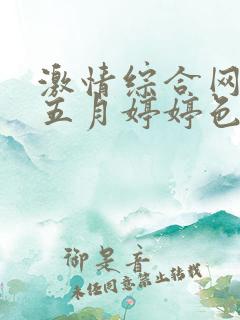 激情综合网
五月婷婷色
御是音
未经同意禁止转载